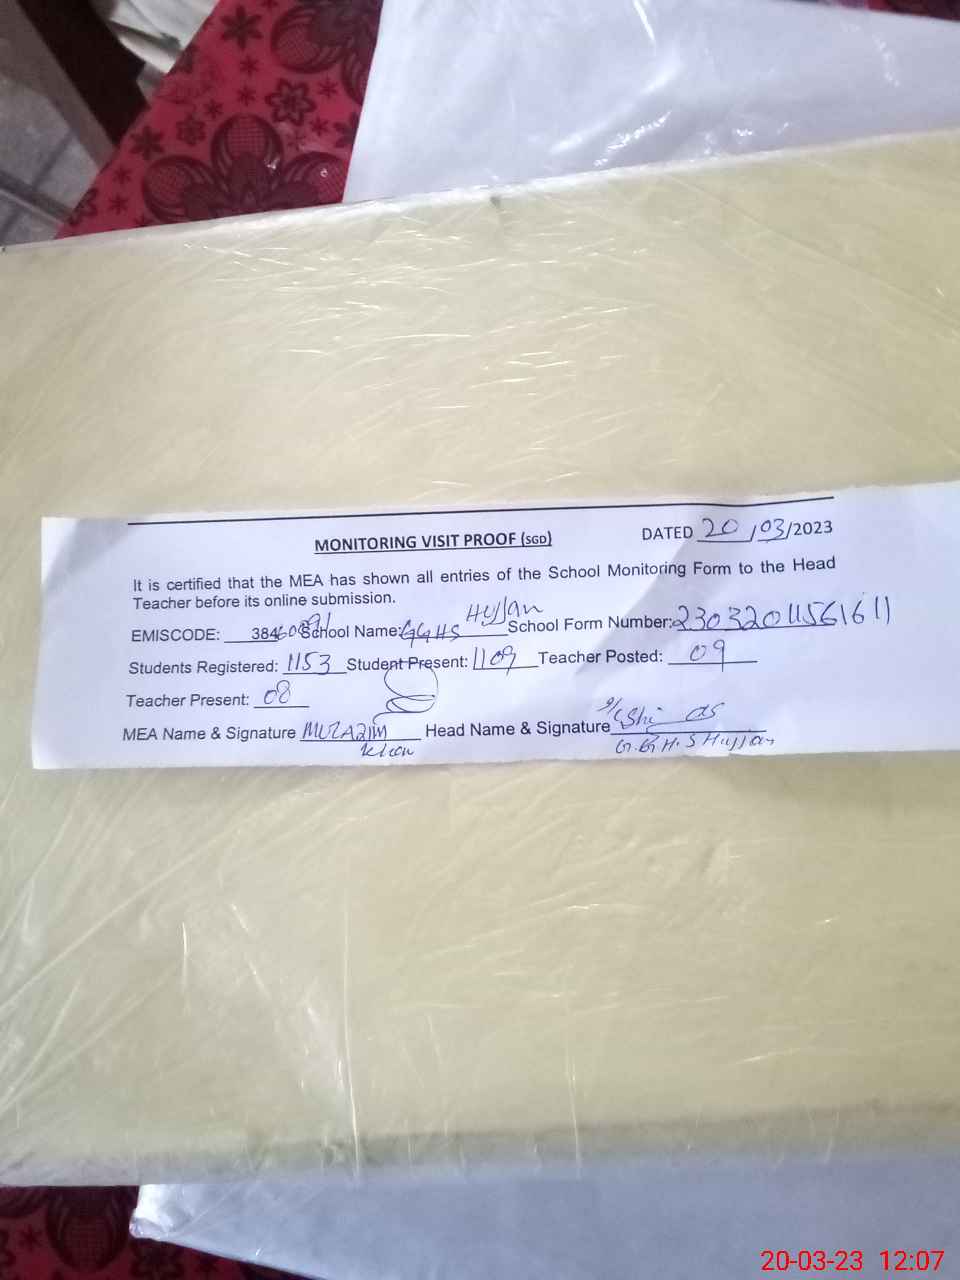 MONITORING VISIT PROOF (SGD)
DATED 20/03/2023
It is certified that the MEA has shown all entries of the School Monitoring Form to the Head
Teacher before its online submission.
EMISCODE: School Name: GGHS Hujjan School Form Number: 23032011561611
Students Registered: 1153 Student Present: 1109 Teacher Posted: 09
Teacher Present: 08
MEA Name & Signature Khan Head Name & Signature
G.G.H.S Hujjan
20-03-23 12:07